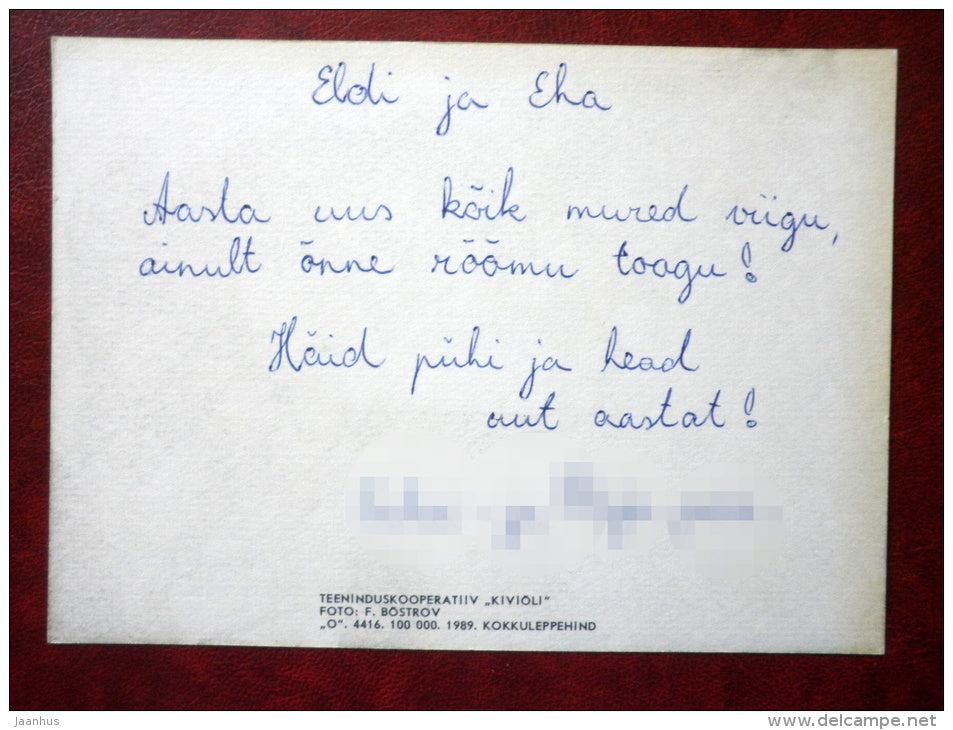 Eldi ja Eha
Aasta uus kõik mured viigu,
ainult õnne rõõmu toogu!
Häid pühi ja head
uut aastat!
TEENINDUSKOOPERATIIV „KIVIÕLI"
FOTO: F. BÕSTROV
„O". 4416. 100 000. 1989. KOKKULEPPEHIND
Jaanhus
www.delcampe.net